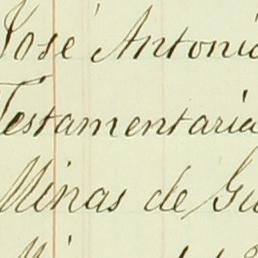 José Antonio
Testamentaria
Minas de Gu